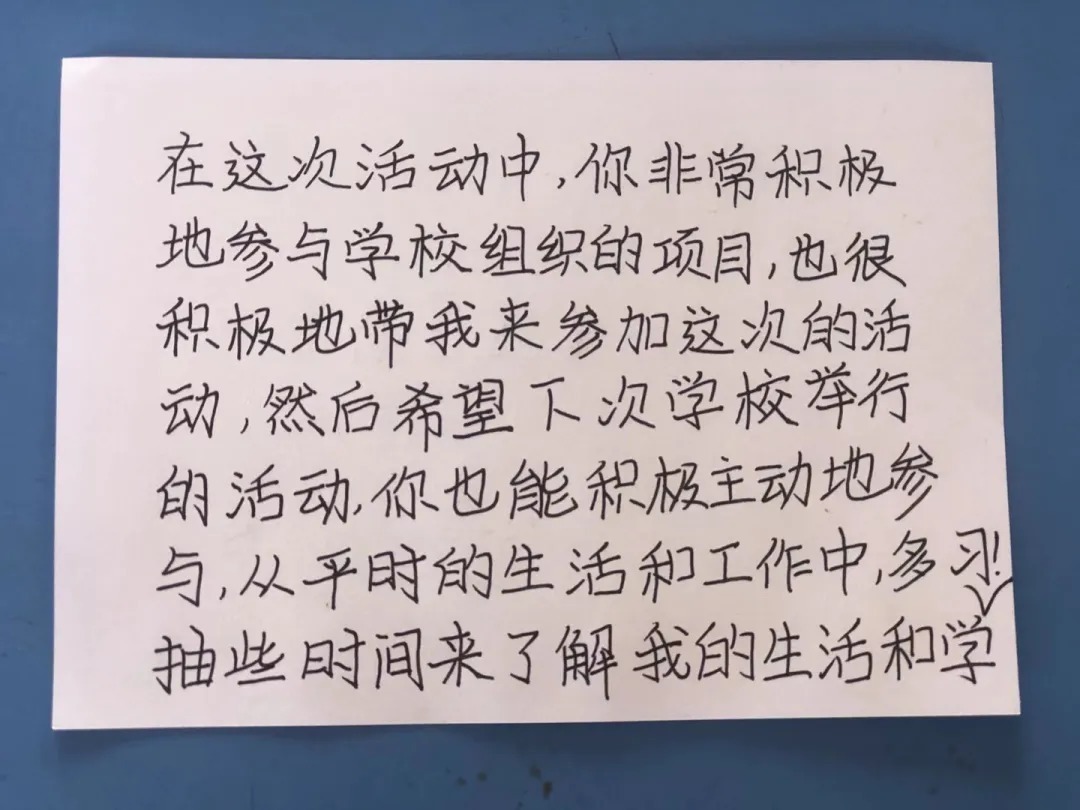 在这次活动中,你非常积极
地参与学校组织的项目,也很
积极地带我来参加这次的活
动,然后希望下次学校举行
的活动,你也能积极主动地参
与,从平时的生活和工作中,多
抽些时间来了解我的生活和学
习!